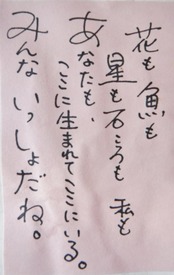 花も 魚も
星も石ころも 私も
あなたも、
ここに生まれてここにいる。
みんな いっしょだね。